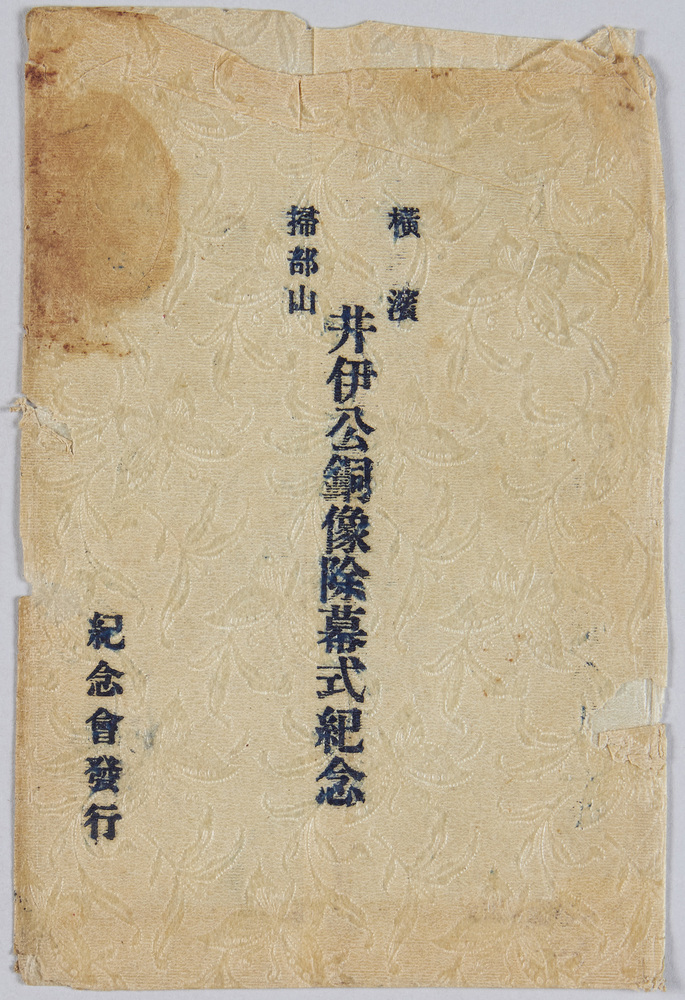 橫濱
掃部山
井伊公銅像除幕式紀念
紀念會發行